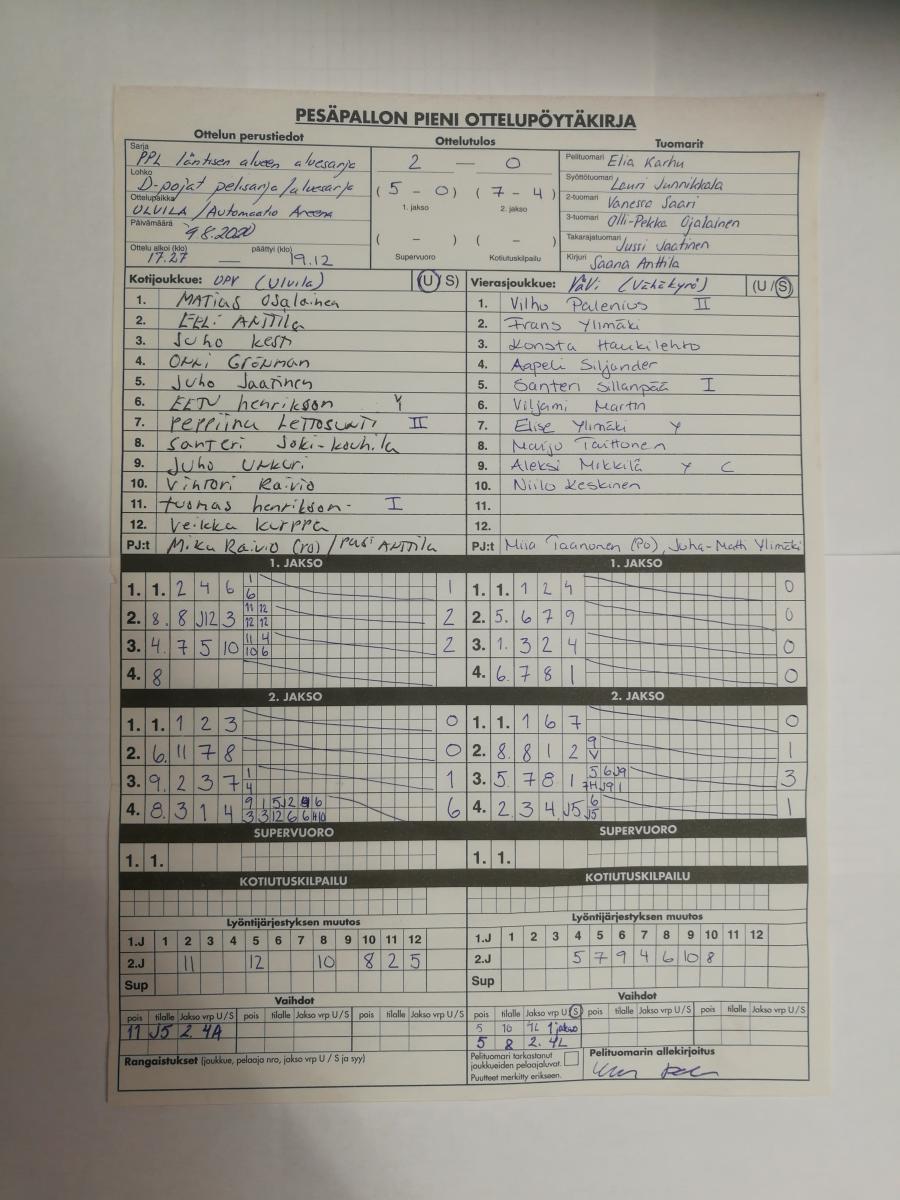 PESÄPALLON PIENI OTTELUPÖYTÄKIRJA
Ottelun perustiedot
Sarja
PPL läntisen alueen aluesarja
Lohko
D-pojat pelisarja/aluesarja
Ottelupaikka
ULVILA / Automaatio Areena
Päivämäärä
9.8.2020
Ottelu alkoi (klo) päättyi (klo)
17.27 — 19.12
Ottelutulos
2 — 0
(5 - 0) (7 - 4)
1. jakso 2. jakso
( - ) ( - )
Supervuoro Kotiutuskilpailu
Tuomarit
Pelituomari Elia Karhu
Syöttötuomari Lauri Junnikkala
2-tuomari Vanessa Saari
3-tuomari Olli-Pekka Ojalainen
Takarajatuomari Jussi Jaatinen
Kirjuri Saana Anttila
Kotijoukkue: (Ulvila) (U/S)
1. MATIAS Ojalainen
2. EELI ANTTILA
3. Juho Kesti
4. ONNI GRÖNMAN
5. Juho Jaatinen
6. EETU henrikson Y
7. II
8. Santeri Joki-Kouhila
9. Juho Unkuri
10. Vihtori Raivio
11. tuomas henrikson I
12. Veikka kurppa
PJ:t Mika Raivio / PASI ANTTILA
Vierasjoukkue: VäVi (Vähäkyrö) (U/S)
1. Vilho Palenius II
2. Frans Ylimäki
3. Konsta Haukilehto
4. Aapeli Siljander
5. Santeri Sillanpää I
6. Viljami Martin
7. Elise Ylimäki Y
8. Maiju Taittonen
9. Aleksi Mikkilä Y C
10. Niilo Keskinen
11.
12.
PJ:t Miia Taanonen (PO), Juha-Matti Ylimäki
1. JAKSO
1. 1. 2 4 6 1 6 1
2. 8. 8 J12 3 11 12 12 12 2
3. 4. 7 5 10 11 4 10 6 2
4. 8
1. JAKSO
1. 1. 1 2 4 0
2. 5. 6 7 9 0
3. 1. 3 2 4 0
4. 6. 7 8 1 0
2. JAKSO
1. 1. 1 2 3 0
2. 6. 11 7 8 0
3. 9. 2 3 7 1 4 1
4. 8. 3 1 4 6
2. JAKSO
1. 1. 1 6 7 0
2. 8. 8 1 2 9 V 1
3. 5. 7 8 1 5 6 J9 3
4. 2. 3 4 J5 6 J5 1
SUPERVUORO
1. 1.
SUPERVUORO
1. 1.
KOTIUTUSKILPAILU
KOTIUTUSKILPAILU
Lyöntijärjestyksen muutos
1.J 1 2 3 4 5 6 7 8 9 10 11 12
2.J 11 12 10 8 2 5
Sup
Lyöntijärjestyksen muutos
1.J 1 2 3 4 5 6 7 8 9 10 11 12
2.J 5 7 9 4 6 10 8
Sup
Vaihdot
pois tilalle Jakso vrp U/S pois tilalle Jakso vrp U/S pois tilalle Jakso vrp U/S
11 J5 2. 4A
Vaihdot
pois tilalle Jakso vrp U/S pois tilalle Jakso vrp U/S pois tilalle Jakso vrp U/S
5 10 4L 1 jakso
5 8 2. 4L
Rangaistukset (joukkue, pelaaja nro, jakso vrp U / S ja syy)
Pelituomari tarkastanut
joukkueiden pelaajaluvat.
Puutteet merkitty erikseen.
Pelituomarin allekirjoitus